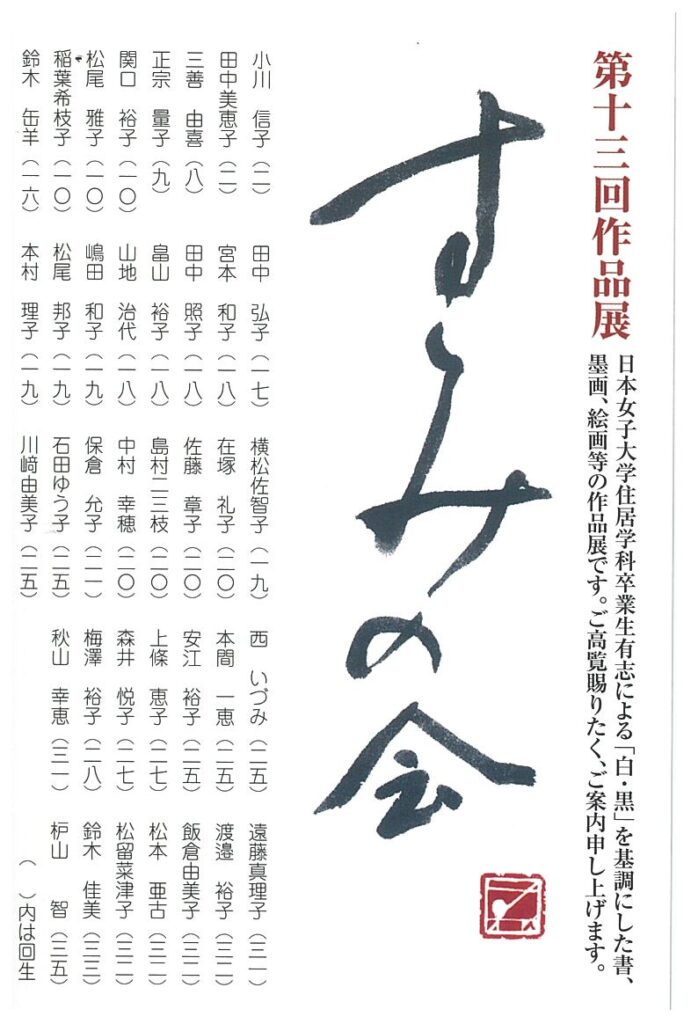 第十三回作品展
日本女子大学住居学科卒業生有志による「白・黒」を基調にした書、
墨画、絵画等の作品展です。ご高覧賜りたく、ご案内申し上げます。
すみの会
小川 信子(二)
田中美恵子(二)
三善 由喜(八)
正宗 量子(九)
関口 裕子(一〇)
松尾 雅子(一〇)
稲葉希枝子(一〇)
鈴木 缶羊(一六)
田中 弘子(一七)
宮本 和子(一八)
田中 照子(一八)
畠山 裕子(一八)
山地 治代(一八)
嶋田 和子(一九)
松尾 邦子(一九)
本村 理子(一九)
横松佐智子(一九)
在塚 礼子(二〇)
佐藤 章子(二〇)
島村二三枝(二〇)
中村 幸穂(二〇)
保倉 允子(二一)
石田ゆう子(二五)
川﨑由美子(二五)
西 いづみ(二五)
本間 一恵(二五)
安江 裕子(二五)
上條 恵子(二七)
森井 悦子(二七)
梅澤 裕子(二八)
秋山 幸恵(三一)
遠藤真理子(三一)
渡邉 裕子(三二)
飯倉由美子(三二)
松本 亜古(三二)
松留菜津子(三二)
鈴木 佳美(三三)
枦山 智(三五)
( )内は回生